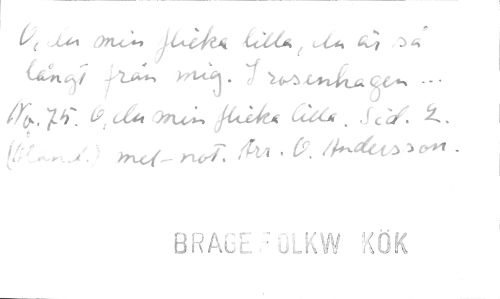 O, du min flicka lilla, du är så
långt från mig. I rosenhagen ...
No. 75. O, du min flicka lilla. Sid. 2.
(Åland.) mel-not. Arr. O. Andersson.
BRAGE FOLKW KÖK